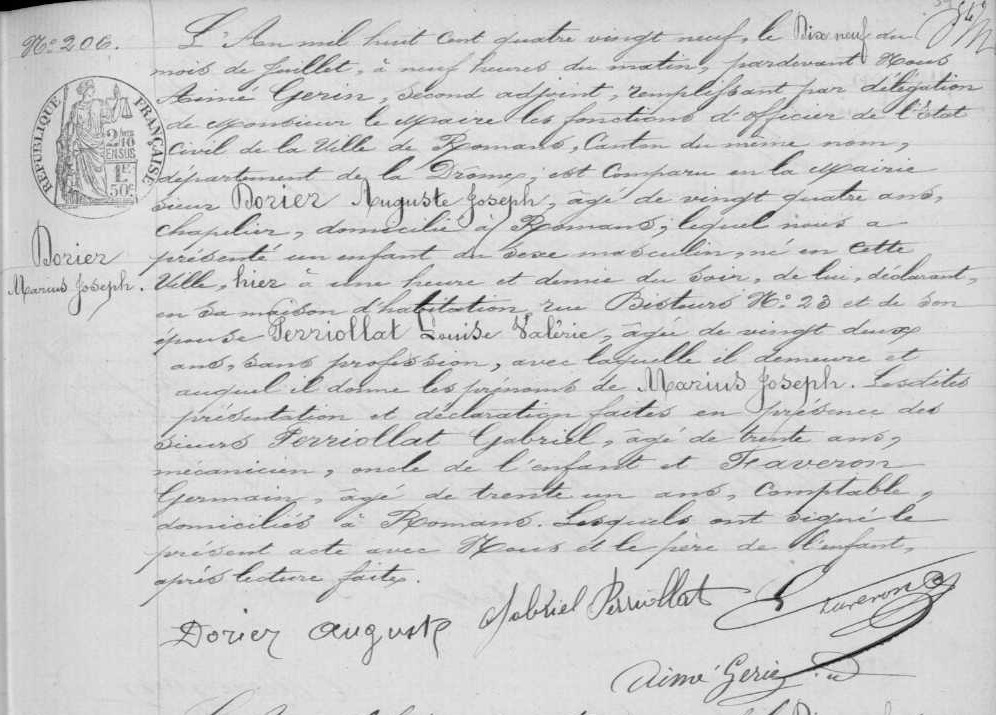 N° 206.
L'An mil huit cent quatre vingt neuf, le Dix neuf du
mois de Juillet, à neuf heures du matin, pardevant Nous
Aimé Gerin, second adjoint, remplissant par délégation
de Monsieur le Maire les fonctions d'officier de l'Etat
Civil de la Ville de Romans, Canton du même nom,
département de la Drôme, est comparu en la Mairie
sieur Dorier Auguste Joseph, âgé de vingt quatre ans,
chapelier, domicilié à Romans, lequel nous a
présenté un enfant du sexe masculin, né en cette
Ville, hier à une heure et demie du soir, de lui, déclarant,
en sa maison d'habitation, rue Bistours N° 23 et de son
épouse Perriollat Louise Valérie, âgée de vingt deux
ans, sans profession, avec laquelle il demeure et
auquel il donne les prénoms de Marius Joseph. Lesdites
présentation et déclaration faites en présence des
sieurs Perriollat Gabriel, âgé de trente ans,
mécanicien, oncle de l'enfant et Faveron
Germain, âgé de trente un ans, comptable,
domiciliés à Romans. Lesquels ont signé le
présent acte avec Nous et le père de l'enfant,
après lecture faite.
RÉPUBLIQUE FRANÇAISE
2/10
EN SUS
1F
50c
Dorier
Marius Joseph.
Dorier Auguste
Gabriel Perriollat
Faveron G
Aimé Gerin